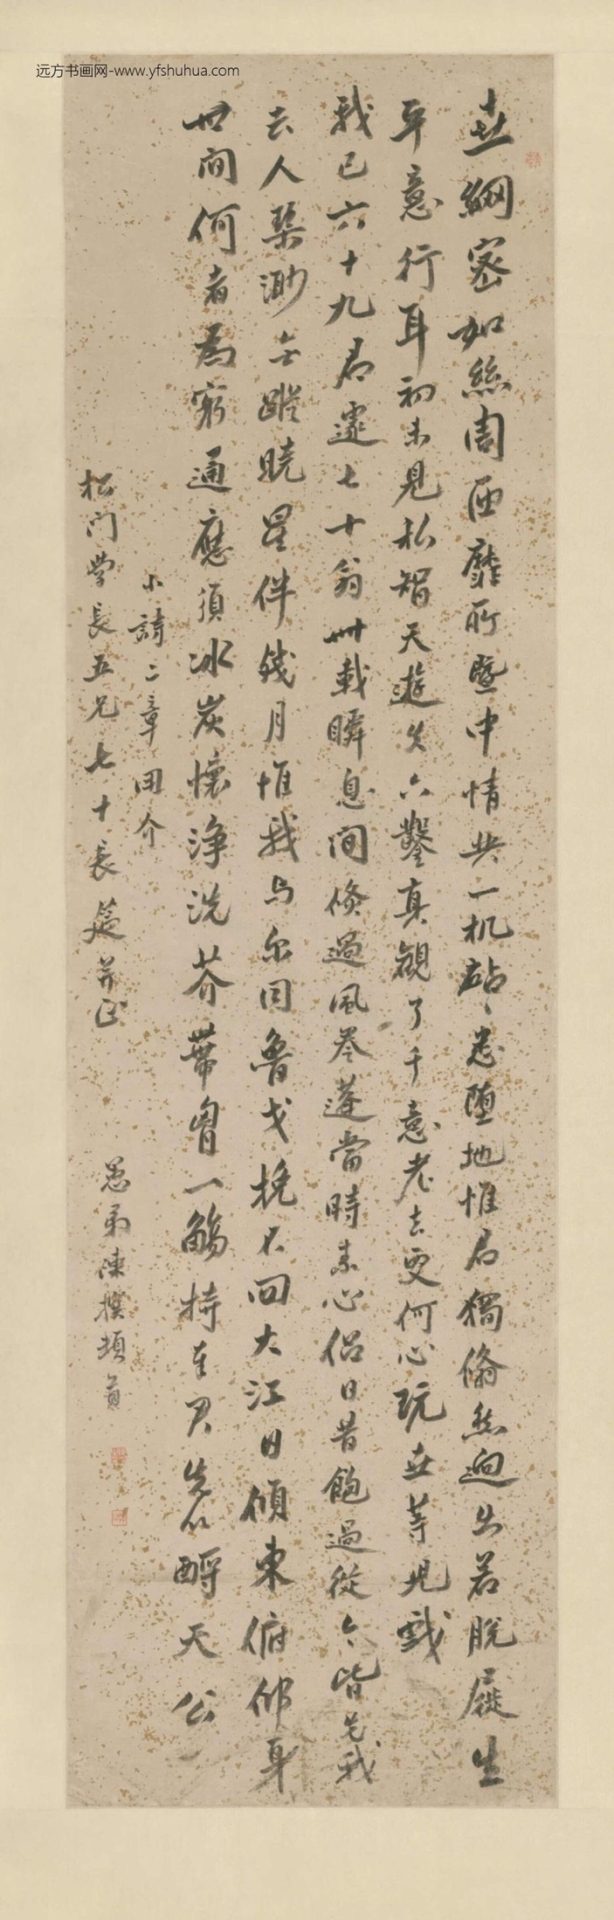 远方书画网-www.yfshuhua.com
世網密如絲周匝靡所暨中情共一机跕〻忽墮地惟君獨翛然迥出若脫屣生
平意行耳初未見私智天遊失六鑿真觀了千意老去更何心玩世等兒戲
我已六十九君遽七十翁卅載瞬息間倏過風卷蓬當時素心侶日昔飽過從今皆先我
去人琴渺無蹤曉星伴殘月惟我与尔同魯戈挽不回大江日傾東俯仰身
世間何者為窮通應須冰炭懷淨洗芥蒂胷一觴持壽君先以酹天公
小詩二章用介
松門學長五兄七十長筵并正
愚弟陳撲頓首